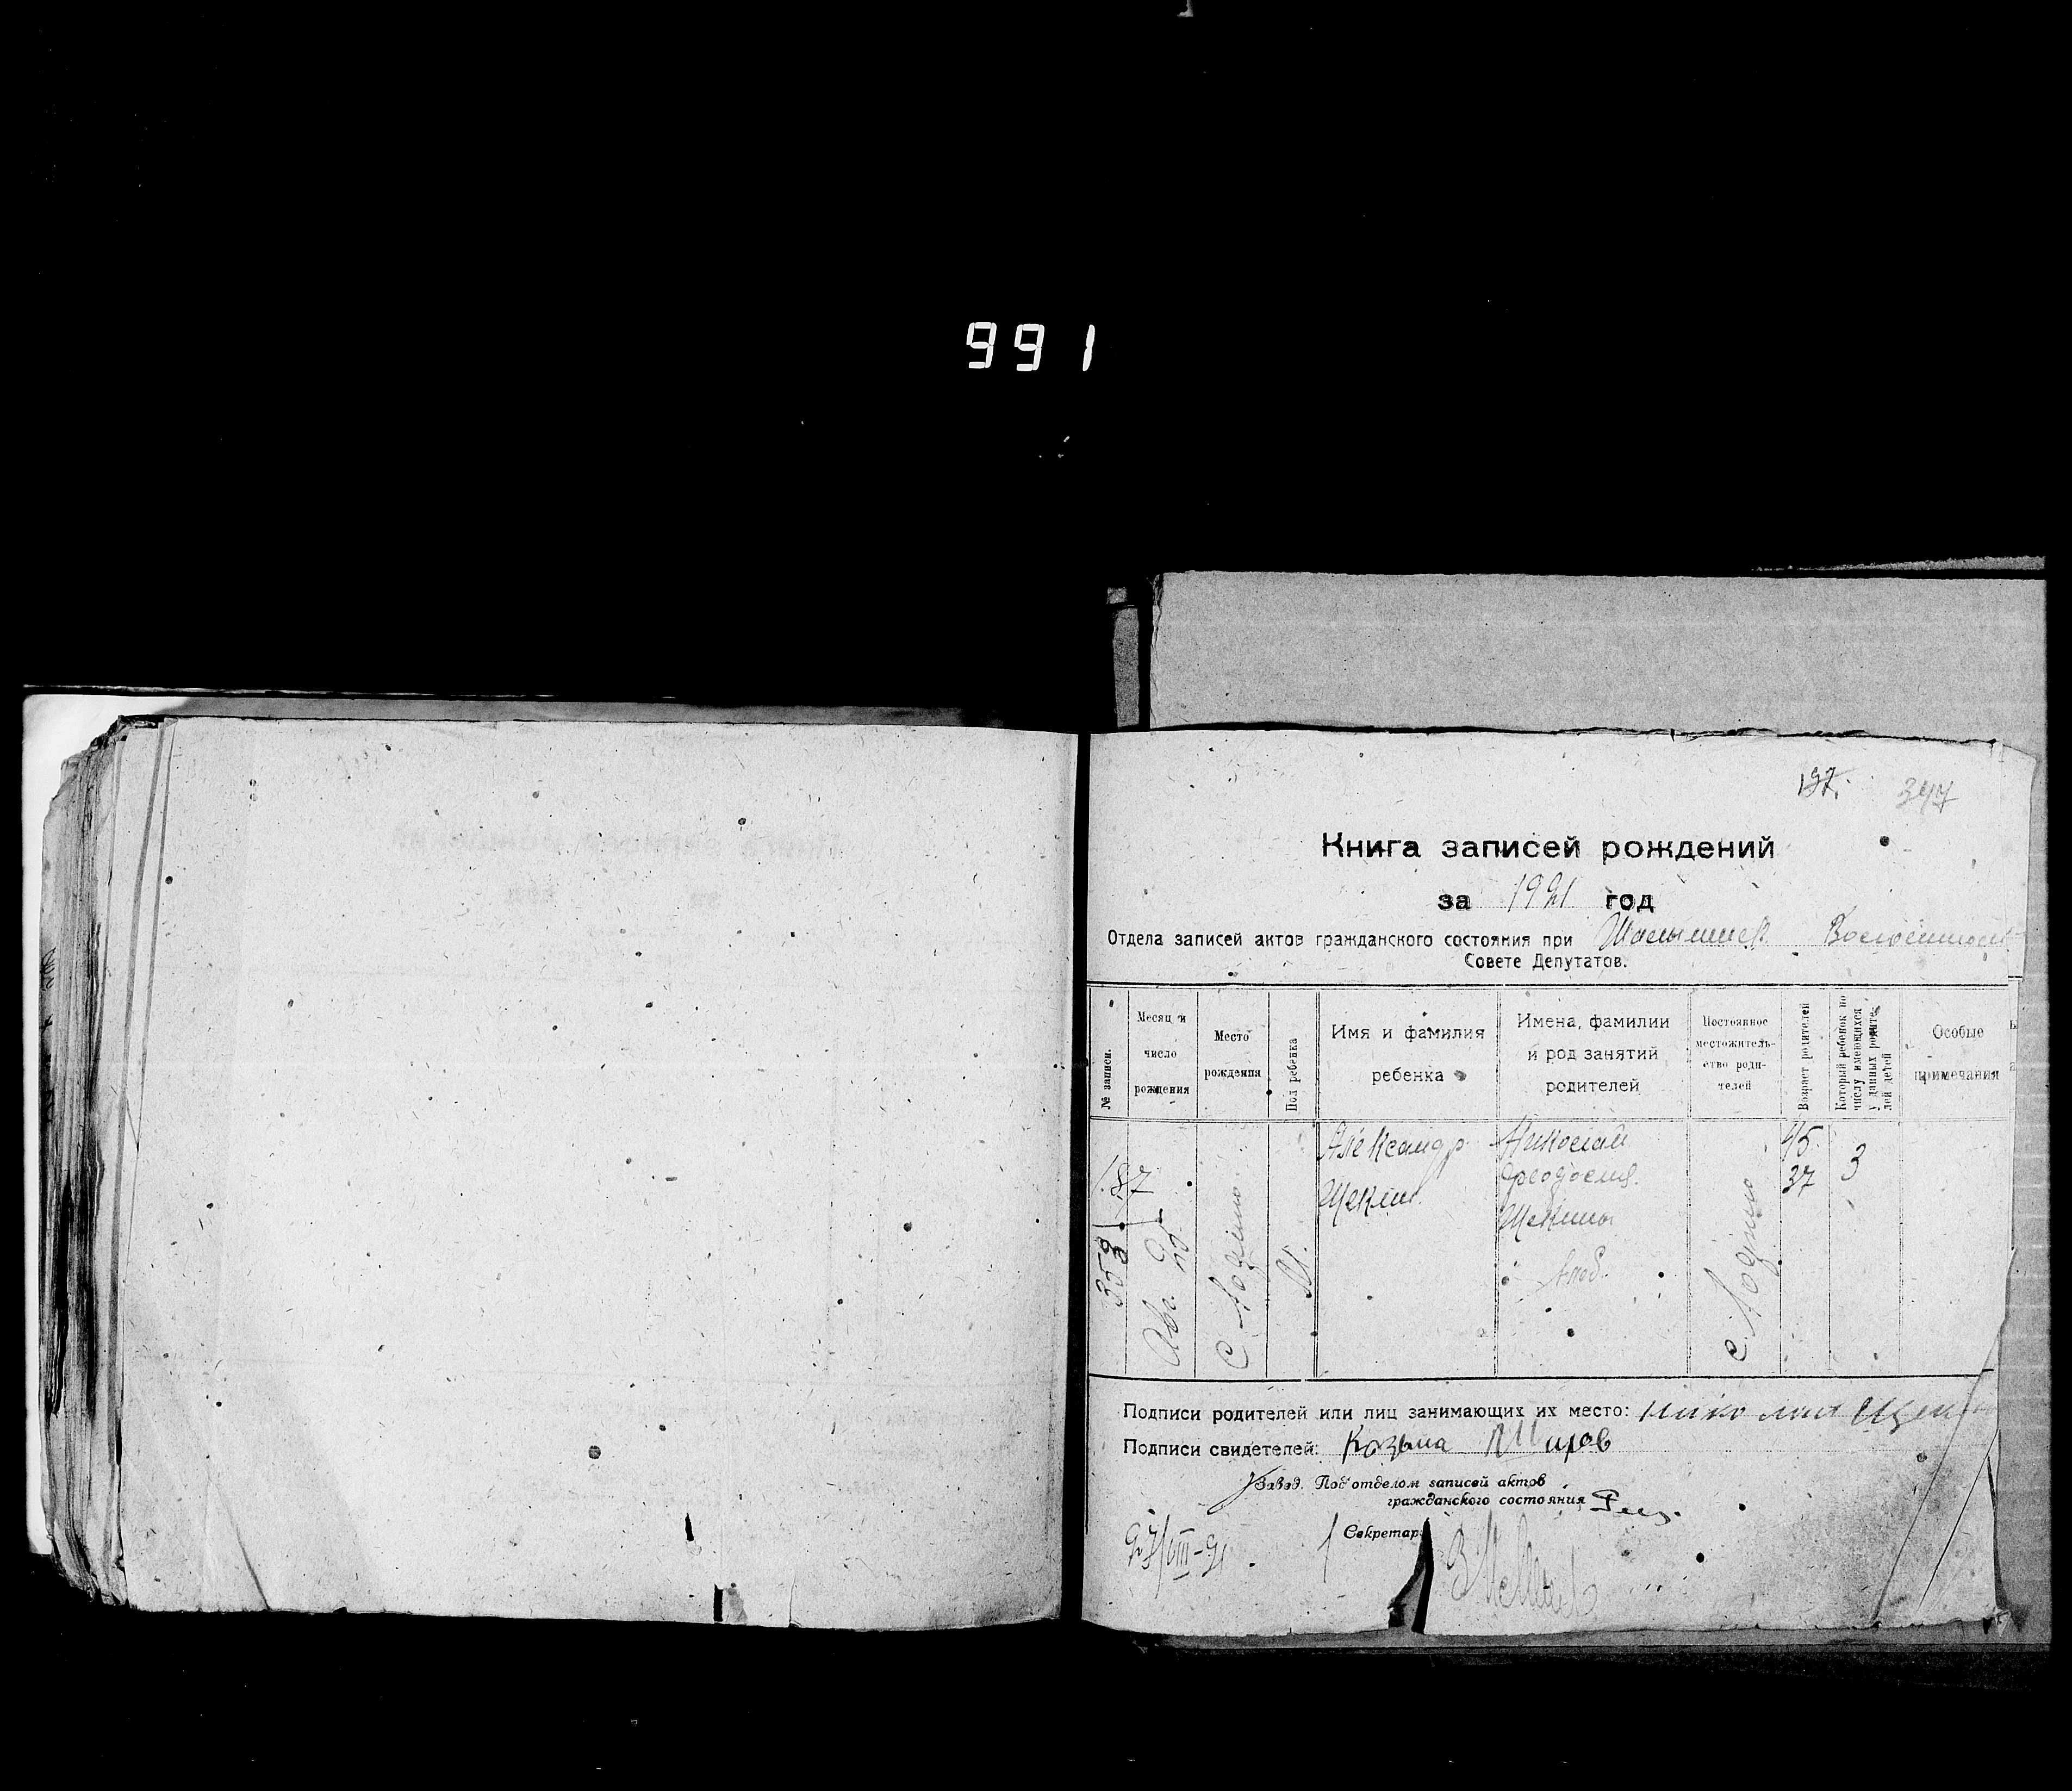 991
197. 347
Книга записей рождений
за 1921 год
Отдела записей актов гражданского состояния при
Совете Депутатов.
№ записи.
Месяц и число рождения
Место рождения
Пол ребенка
Имя и фамилия ребенка
Имена, фамилии и род занятий родителей
Постоянное местожительство родителей
Возраст родителей
Который ребенок по числу имеющихся у данных родителей детей
Особые примечания
187
358
Авг.
с.
М.
Александр
Щекин
Николай
Феодосия
Щекины
с.
45
37
3
Подписи родителей или лиц занимающих их место: Николай
Подписи свидетелей: Козьма
Завед. Подотделом записей актов
гражданского состояния
Секретар
27/VIII-21